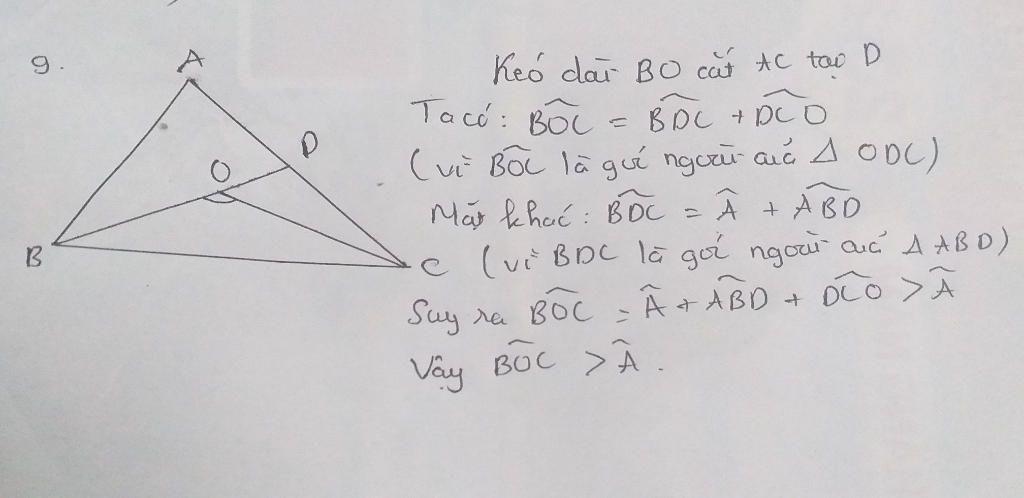 9.
A
D
O
B
C
Keó dài BO cắt AC tại D
Ta có: \widehat{BOC} = \widehat{BDC} + \widehat{DCO}
(vì \widehat{BOC} là góc ngoài của Δ ODC)
Mặt khác: \widehat{BDC} = \widehat{A} + \widehat{ABD}
(vì BDC là góc ngoài của Δ ABD)
Suy ra \widehat{BOC} = \widehat{A} + \widehat{ABD} + \widehat{DCO} > \widehat{A}
Vậy \widehat{BOC} > \widehat{A}.